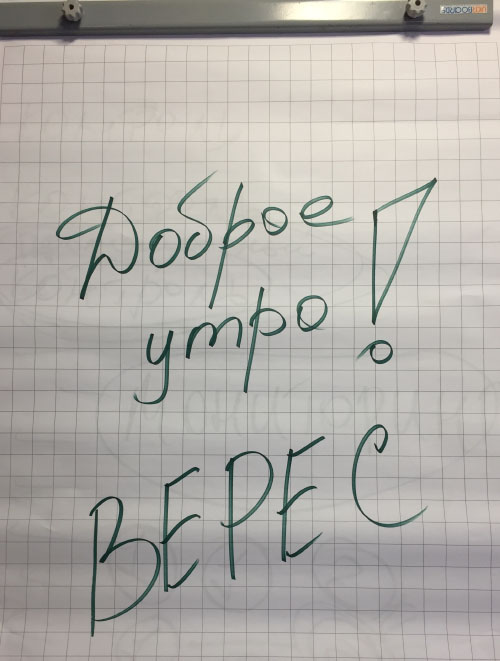 Доброе
утро!
ВЕРЕС